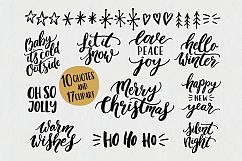 Baby
it's cold
Outside
let it
Snow
love
PEACE
JOY
hello
Winter
OH SO
JOLLY
10
QUOTES
AND
17 CLIPART
Merry
Christmas
happy
NEW
year
Warm
Wishes
HO HO HO
Silent
Night